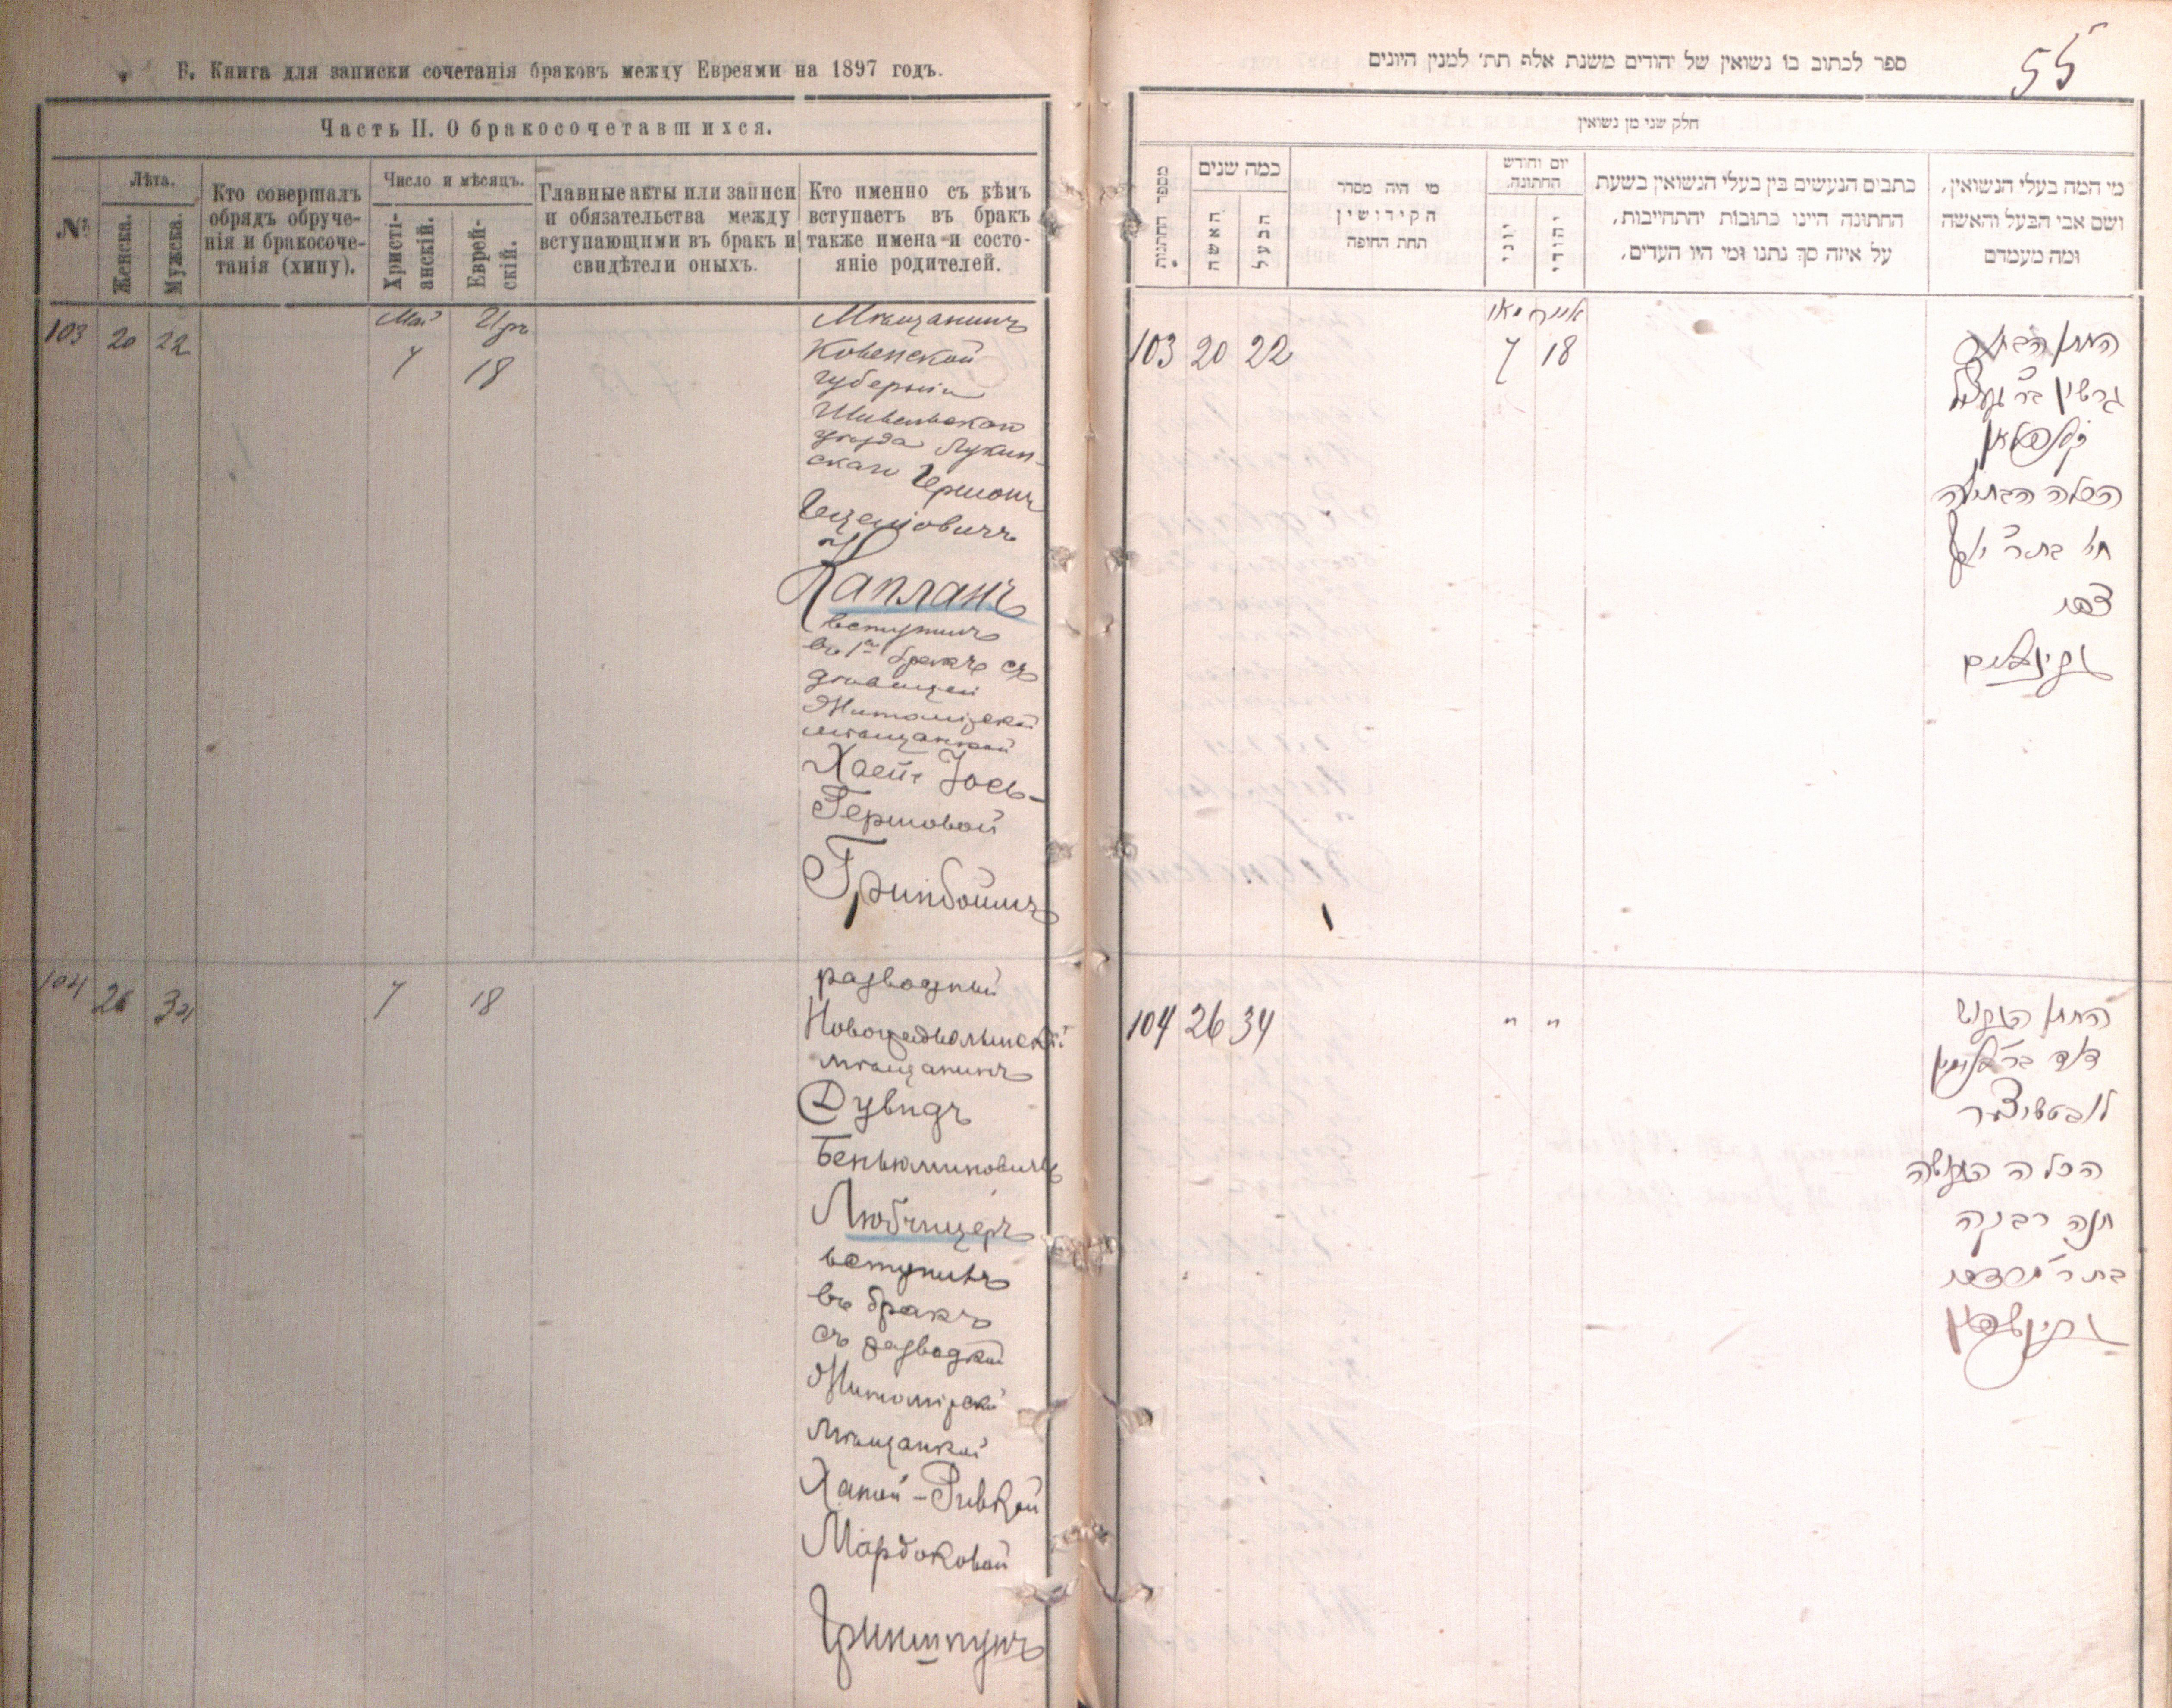 Б. Книга для записки сочетанія браковъ между Евреями на 1897 годъ.
Часть II. О бракосочетавшихся.
№
Лѣта.
Женска.
Мужска.
Кто совершалъ
обрядъ обруче-
нія и бракосоче-
танія (хипу).
Число и мѣсяцъ.
Христі-
анскій.
Еврей-
скій.
Главные акты или записи
и обязательства между
вступающими въ бракъ и
свидѣтели оныхъ.
Кто именно съ кѣмъ
вступаетъ въ бракъ
также имена и состо-
яніе родителей.
103 20 22
Май Іяръ
7 18
Мѣщанинъ
Ковенской
губерніи
Шавельскаго
уѣзда
скаго Гершонъ
Капланъ
вступилъ
въ 1й бракъ съ
дѣвицей
Житомірской
мѣщанкой
Хаей Іось-
Гершовой
Гринбоймъ
104 26 34 7 18
разводный
мѣщанинъ
Дувидъ
Беньяминовичъ
Любчицеръ
вступилъ
въ бракъ
съ разводкой
Житомірской
мѣщанкой
Ханой-Ривкой
Мордковой
Гриншпунъ
ספר לכתוב בו נשואין של יהודים משנת אלף תת׳ למנין היונים
55
חלק שני מן נשואין
מספר החתנות
כמה שנים
האשה
הבעל
מי היה מסדר
הקידושין
תחת החופה
יום וחודש
החתונה.
יוני
יהודי
כתבים הנעשים בין בעלי הנשואין בשעת
החתונה היינו כתובות יהתחייבות,
על איזה סך נתנו ומי היו העדים,
מי המה בעלי הנשואין,
ושם אבי הבעל והאשה
ומה מעמדם
103 20 22
מאי אייר
7 18
החתן הבחור
גרשון בר געציל
קאפלאן
הכלה הבתולה
חי׳ בת ר׳ יוסף
צבי
גרינבוים
104 26 34 " "
החתן הגרוש
דוד בר בנימין
לובטשיצער
הכלה הגרושה
חנה רבקה
בת ר׳ מרדכי
גרינשפון